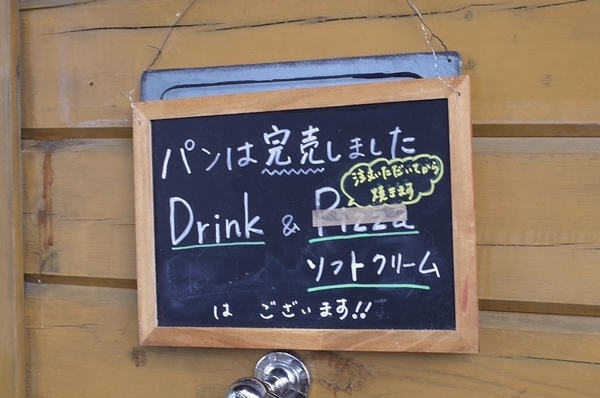 パンは完売しました
注文いただいてから
焼きます
Drink & Pizza
ソフトクリーム
は ございます!!